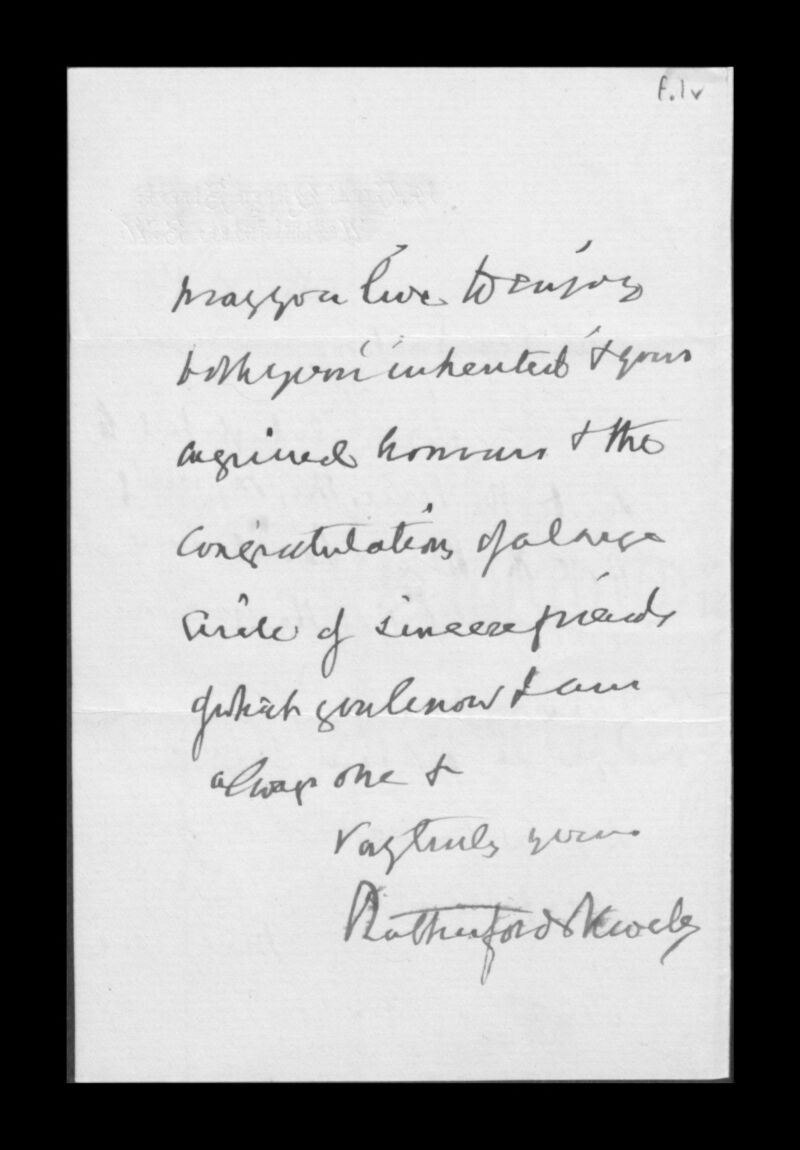 f.1v
may you live to enjoy
both your inherited & your
acquired honours & the
congratulations of a large
circle of sincere friends
of which you know I am
always one &
Very truly yours
Rutherford